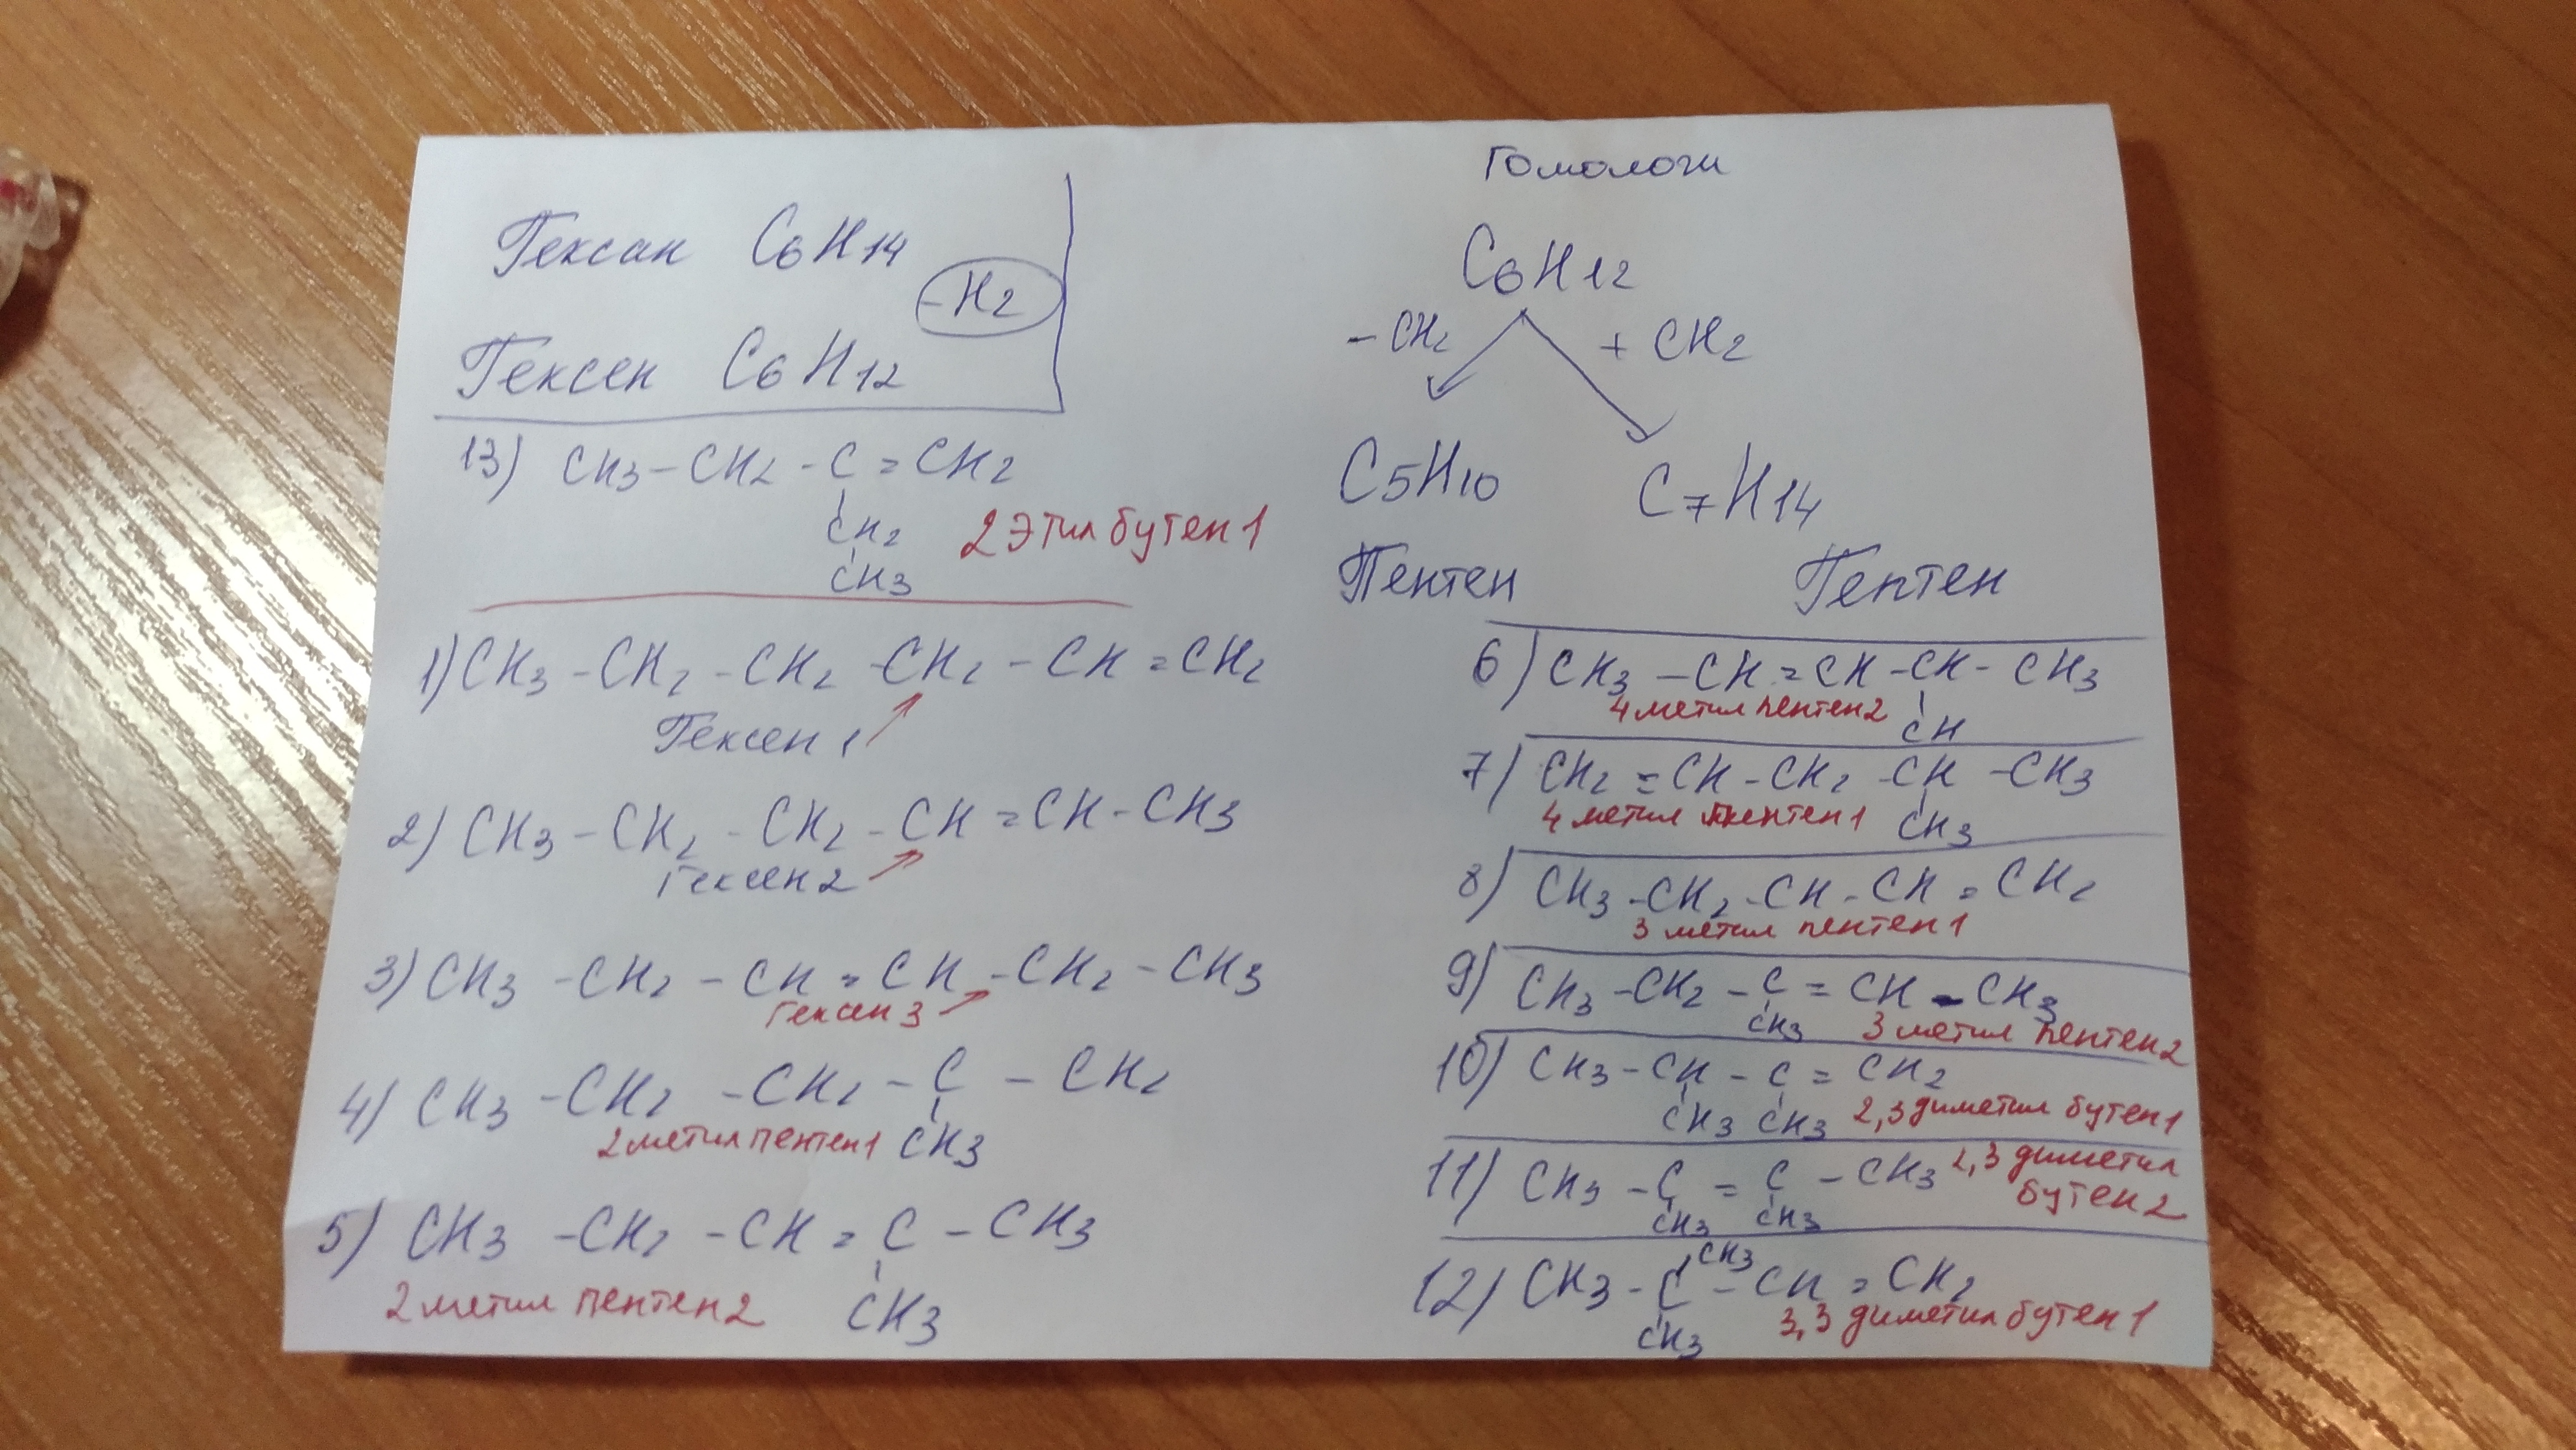 Гексан C6H14
-H2
Гексен C6H12
13) CH3 - CH2 - C = CH2
CH2
CH3
2 Этил бутен 1
1) CH3 - CH2 - CH2 - CH2 - CH = CH2
Гексен 1
2) CH3 - CH2 - CH2 - CH = CH - CH3
Гексен 2
3) CH3 - CH2 - CH = CH - CH2 - CH3
Гексен 3
4) CH3 - CH2 - CH2 - C - CH2
2 метил пентен 1 CH3
5) CH3 - CH2 - CH = C - CH3
2 метил пентен 2 CH3
Гомологи
C6H12
- CH2 + CH2
C5H10 C7H14
Пентен Гептен
6) CH3 - CH = CH - CH - CH3
4 метил пентен 2 CH
7) CH2 = CH - CH2 - CH - CH3
4 метил пентен 1 CH3
8) CH3 - CH2 - CH - CH = CH2
3 метил пентен 1
9) CH3 - CH2 - C = CH - CH3
CH3 3 метил пентен 2
10) CH3 - CH - C = CH2
CH3 CH3 2,3 диметил бутен 1
11) CH3 - C = C - CH3 2,3 диметил
CH3 CH3 бутен 2
CH3
12) CH3 - C - CH = CH2
CH3 3,3 диметил бутен 1